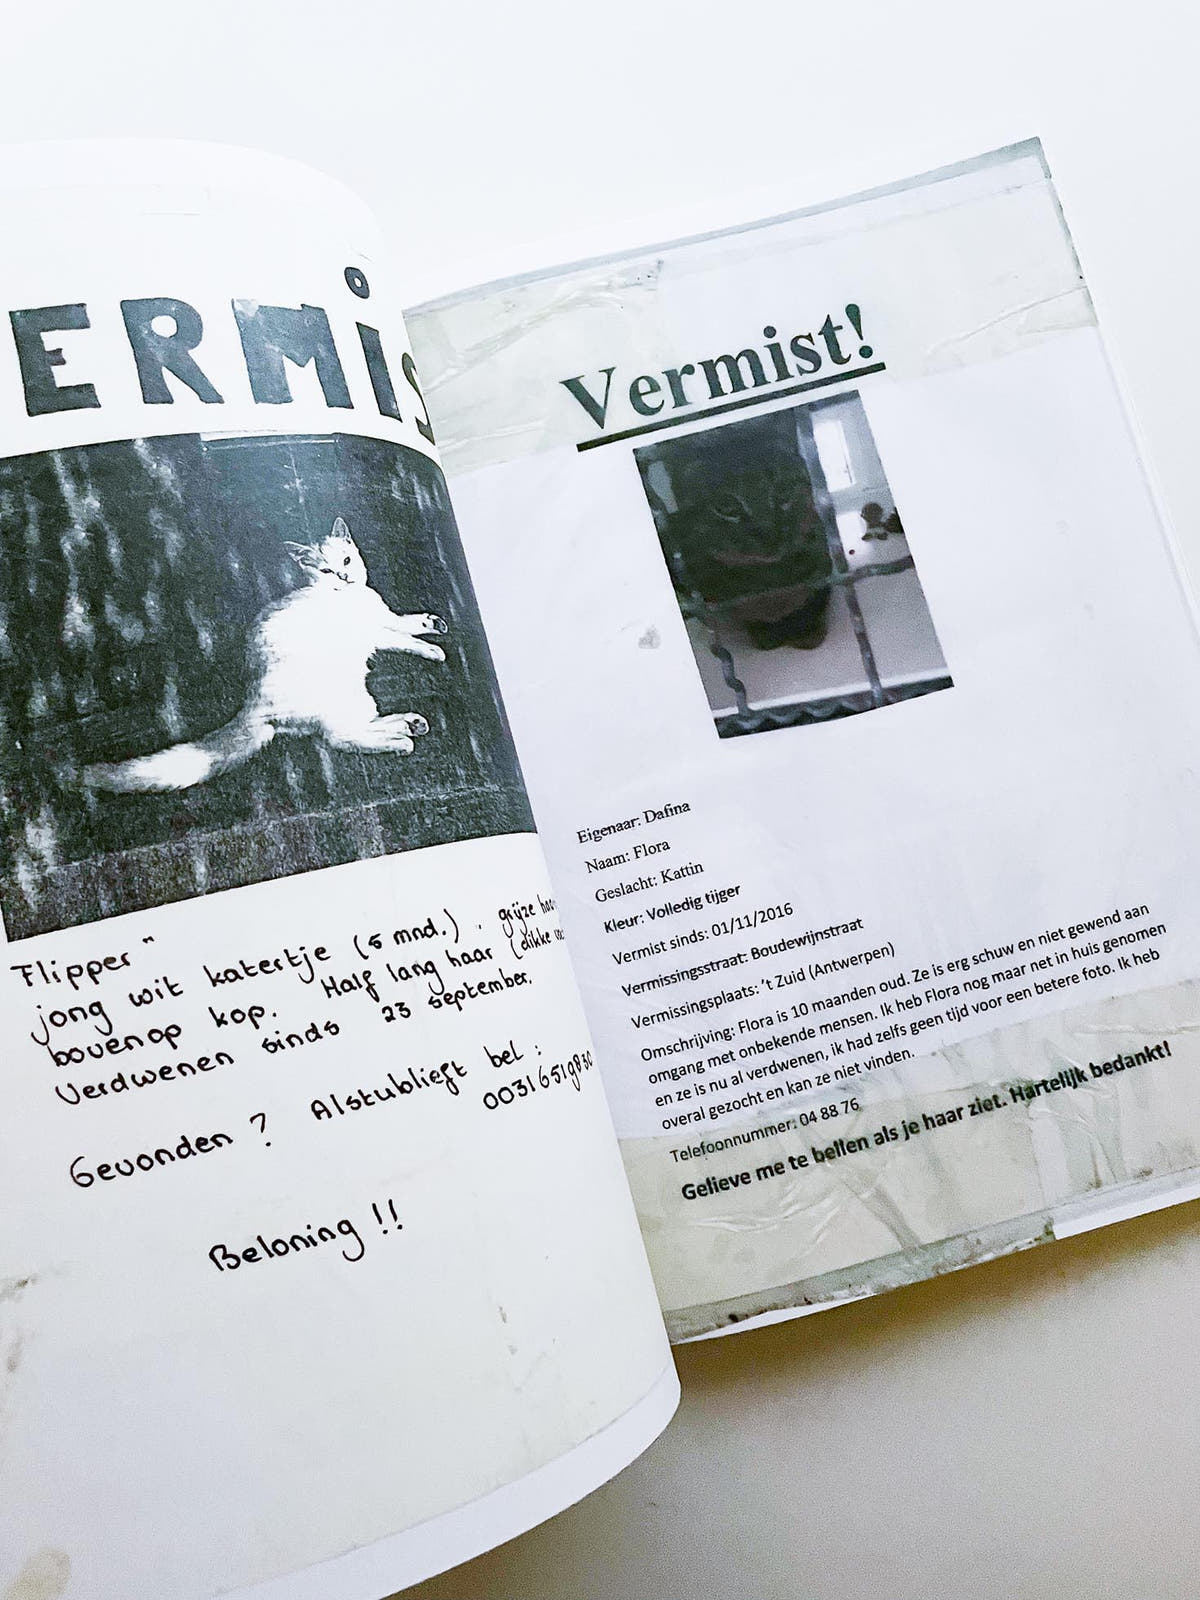 ERMIS
Flipper"
jong wit katertje (5 mnd.). grijze
bovenop kop. Half lang haar (dikke
Verdwenen sinds 23 september.
Gevonden? Alstubliegt bel:
0031651983
Beloning!!
Vermist!
Eigenaar: Dafina
Naam: Flora
Geslacht: Kattin
Kleur: Volledig tijger
Vermist sinds: 01/11/2016
Vermissingsstraat: Boudewijnstraat
Vermissingsplaats: 't Zuid (Antwerpen)
Omschrijving: Flora is 10 maanden oud. Ze is erg schuw en niet gewend aan
omgang met onbekende mensen. Ik heb Flora nog maar net in huis genomen
en ze is nu al verdwenen, ik had zelfs geen tijd voor een betere foto. Ik heb
overal gezocht en kan ze niet vinden.
Telefoonnummer: 04 88 76
Gelieve me te bellen als je haar ziet. Hartelijk bedankt!